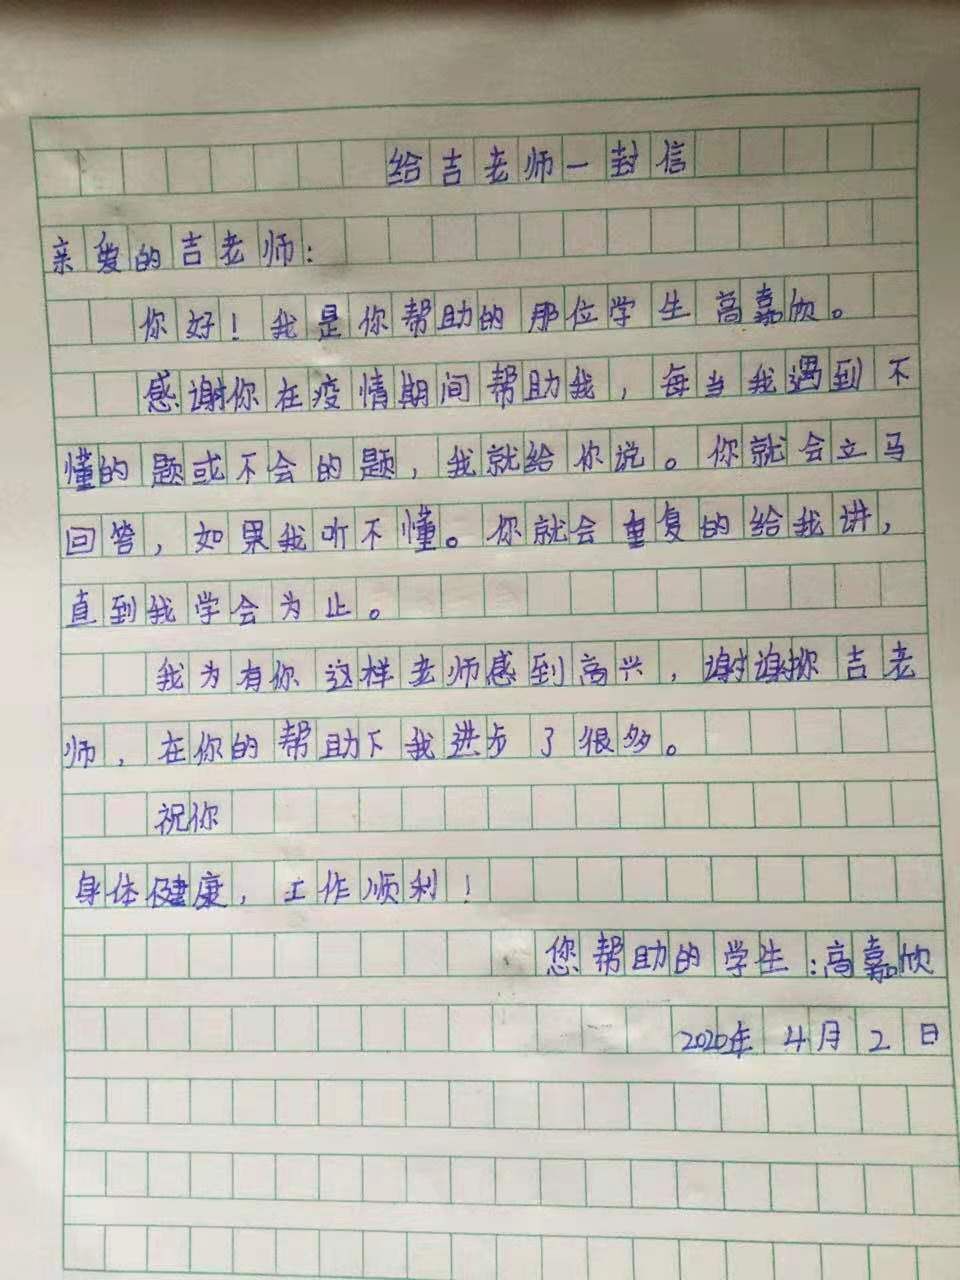 给吉老师一封信
亲爱的吉老师：
你好！我是你帮助的那位学生高嘉欣。
感谢你在疫情期间帮助我，每当我遇到不
懂的题或不会的题，我就给你说。你就会立马
回答，如果我听不懂。你就会重复的给我讲，
直到我学会为止。
我为有你这样老师感到高兴，谢谢你吉老
师，在你的帮助下我进步了很多。
祝你
身体健康，工作顺利！
您帮助的学生：高嘉欣
2020年4月2日